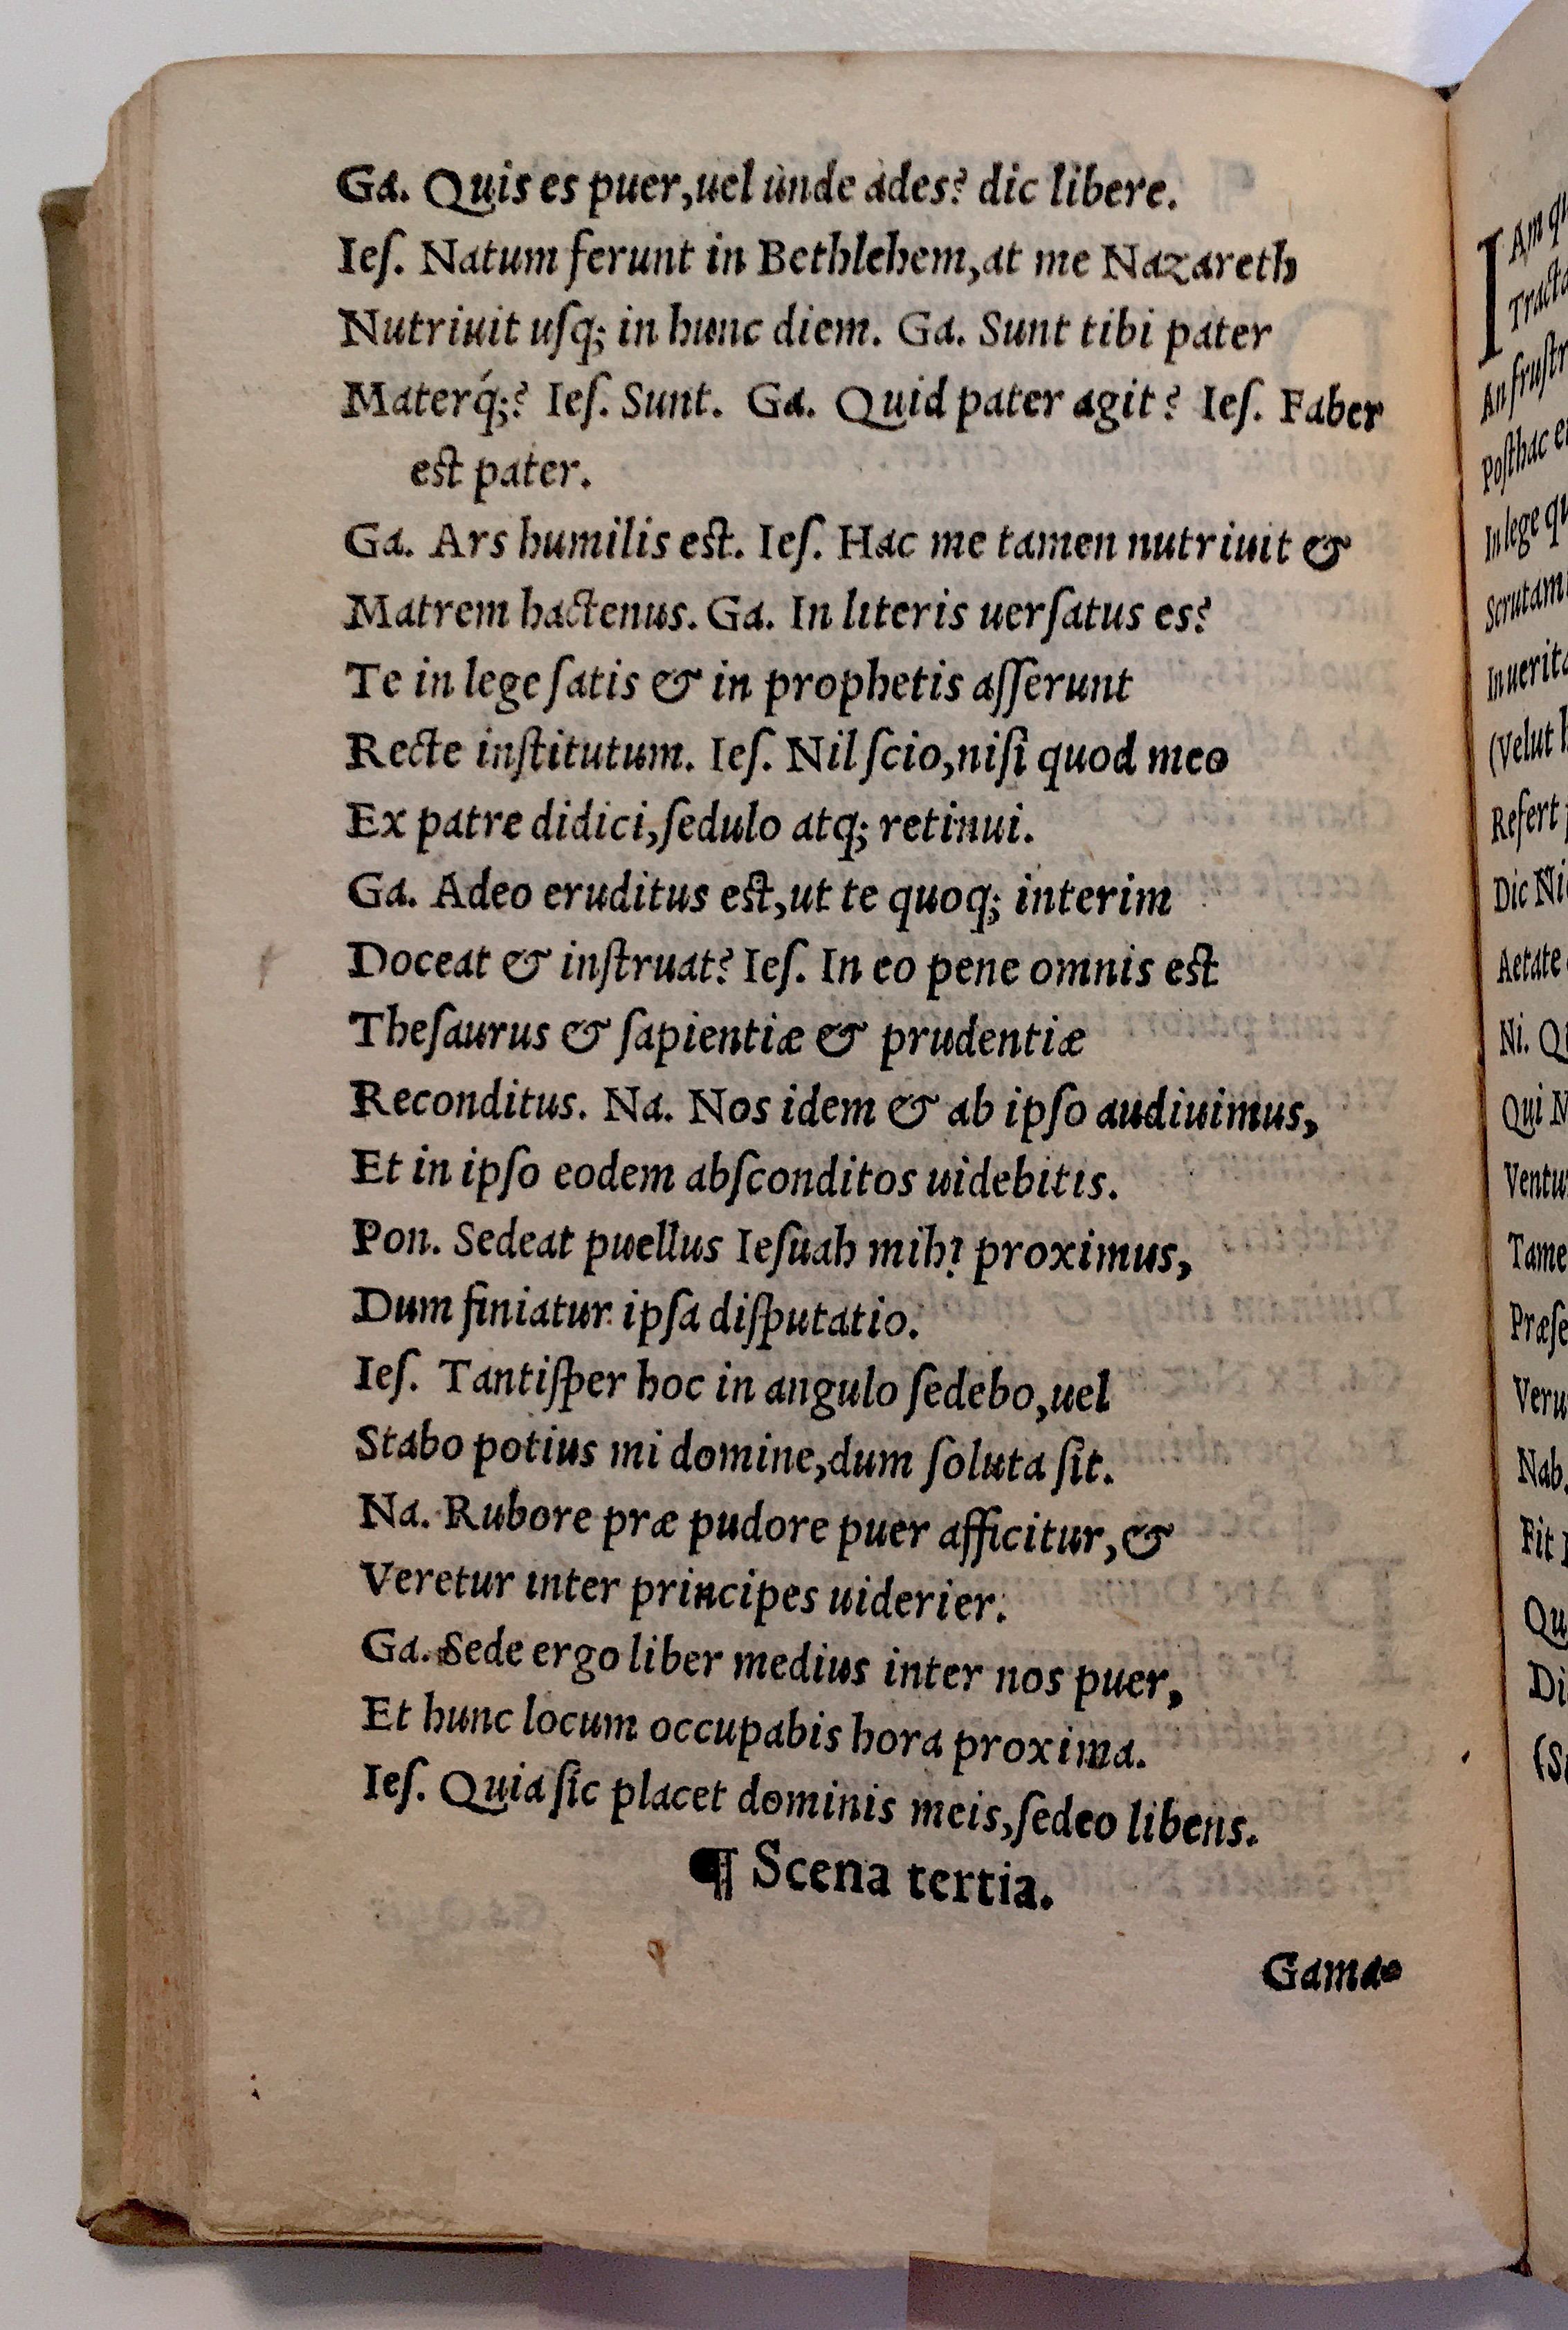 Ga. Quis es puer,uel ùnde ades? dic libere.
Ieſ. Natum ferunt in Bethlehem,at me Nazareth
Nutriuit uſq; in hunc diem. Ga. Sunt tibi pater
Materq́;? Ieſ. Sunt. Ga. Quid pater agit? Ieſ. Faber
est pater.
Ga. Ars humilis est. Ieſ. Hac me tamen nutriuit &
Matrem hactenus. Ga. In literis uerſatus es?
Te in lege ſatis & in prophetis aſſerunt
Recte inſtitutum. Ieſ. Nil ſcio,niſi quod meo
Ex patre didici,ſedulo atq; retinui.
Ga. Adeo eruditus est,ut te quoq; interim
Doceat & inſtruat? Ieſ. In eo pene omnis est
Theſaurus & ſapientiæ & prudentiæ
Reconditus. Na. Nos idem & ab ipſo audiuimus,
Et in ipſo eodem abſconditos uidebitis.
Pon. Sedeat puellus Ieſuah mihi proximus,
Dum finiatur ipſa diſputatio.
Ieſ. Tantiſper hoc in angulo ſedebo,uel
Stabo potius mi domine,dum ſoluta ſit.
Na. Rubore præ pudore puer afficitur,&
Veretur inter principes uiderier.
Ga. Sede ergo liber medius inter nos puer,
Et hunc locum occupabis hora proxima.
Ieſ. Quia ſic placet dominis meis,ſedeo libens.
¶ Scena tertia.
Gama-
I Am
An
Poſthac
In lege
In
(Velut
Refert
Dic
Aetate
Ni.
Qui
Nab.
Fit